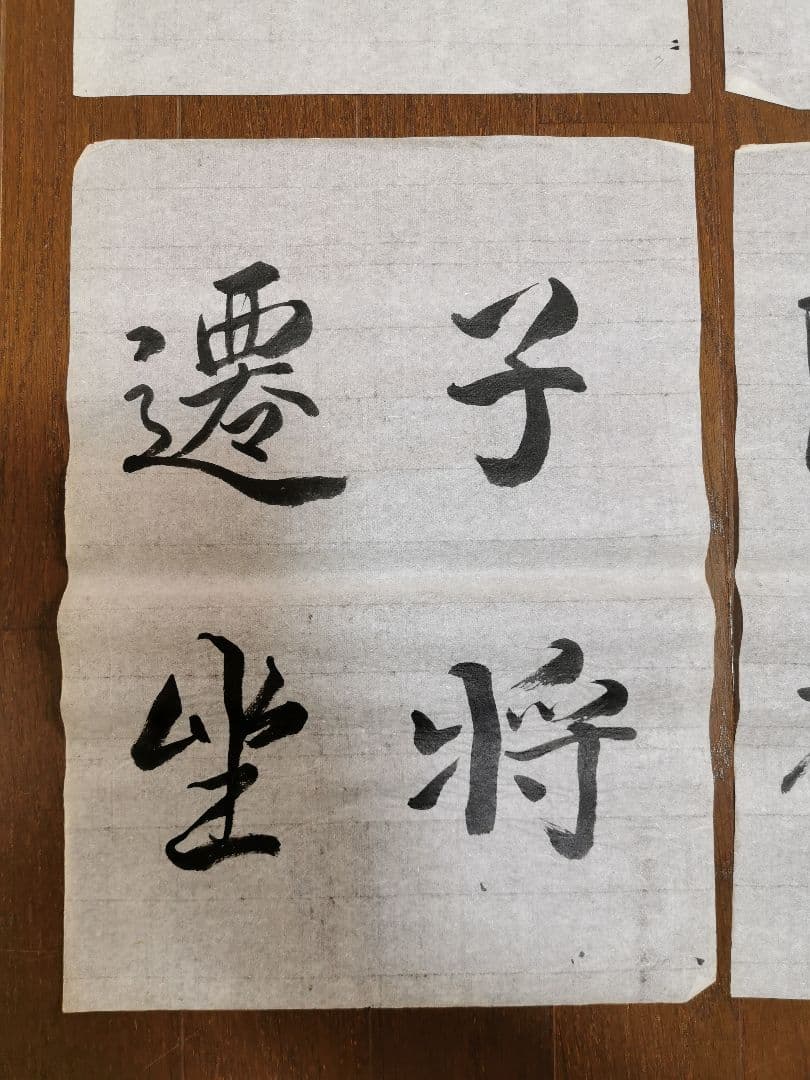 子将
遷坐